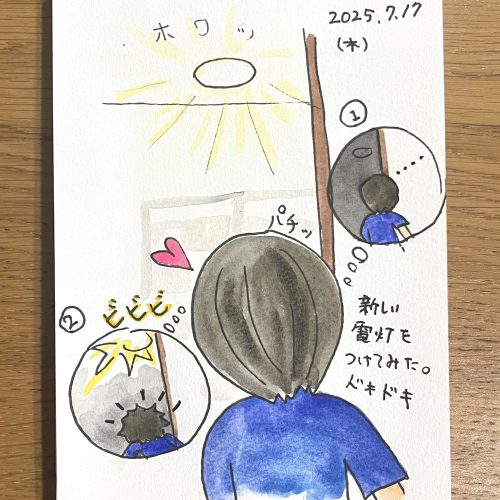 2025.7.17
(木)
ホワッ
①
パチッ
②
ビビビ
新しい
電灯を
つけてみた。
ドキドキ